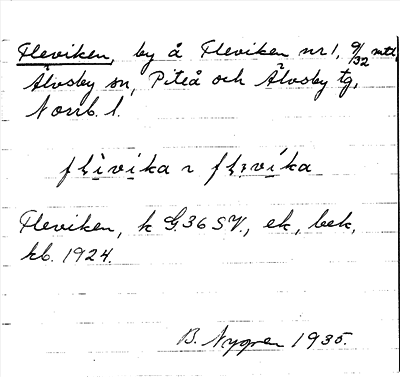 Fleviken, by å Fleviken nr 1, 9/32 mtl,
Älvsby sn, Piteå och Älvsby tg,
Norrb. l.
flivika ~ flɩvika
Fleviken, k G.36 SV., ek, bek,
kb. 1924.
B. Nygren 1935.